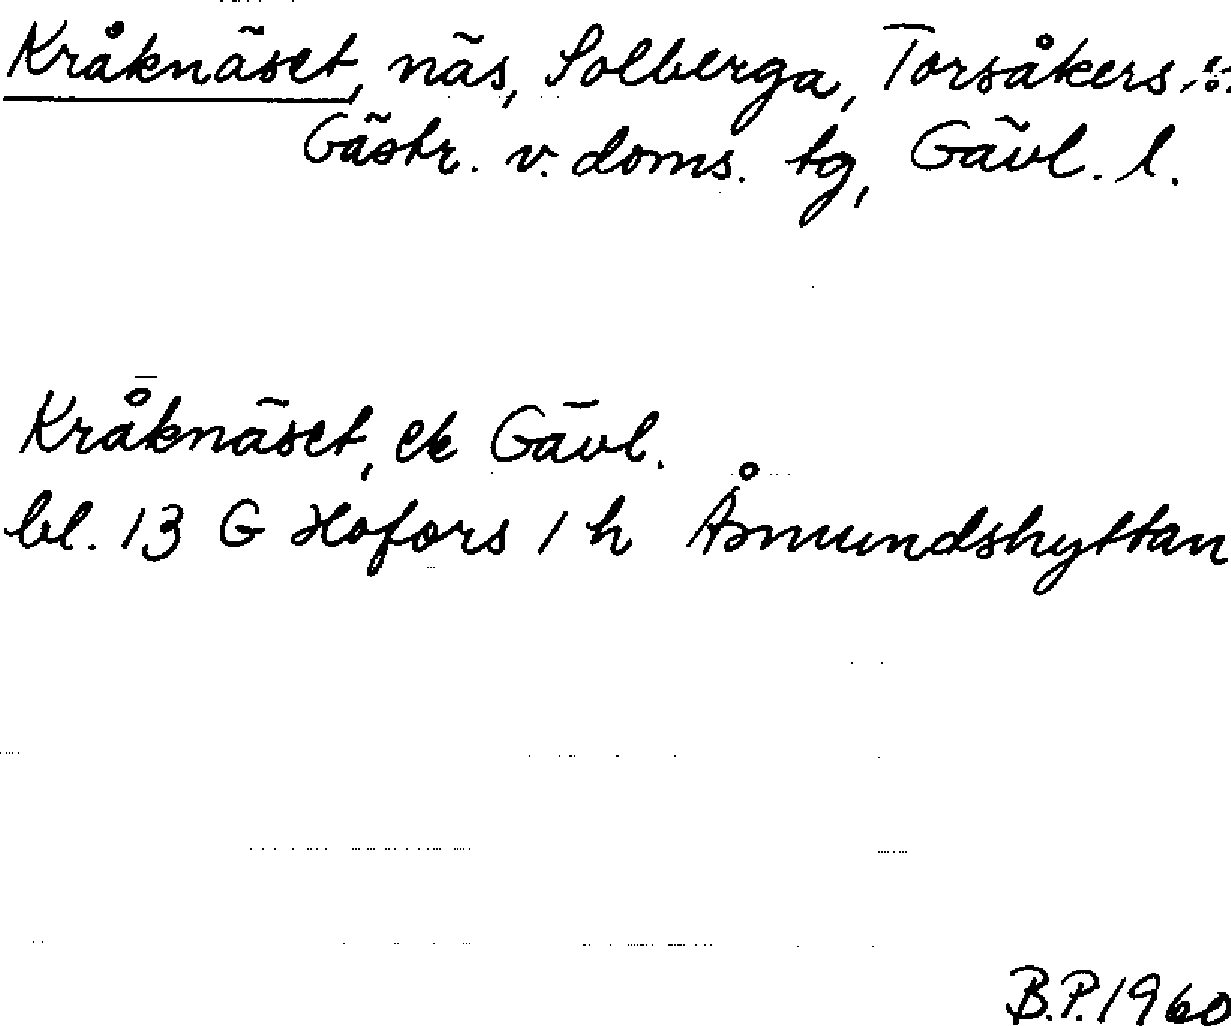 Kråknäset, näs, Solberga, Torsåkers s:n
Gästr. v. doms. tg, Gävl. l.
Kråknäset, ek Gävl.
bl. 13 G Hofors 1 h Åmundshyttan
B.P. 1960